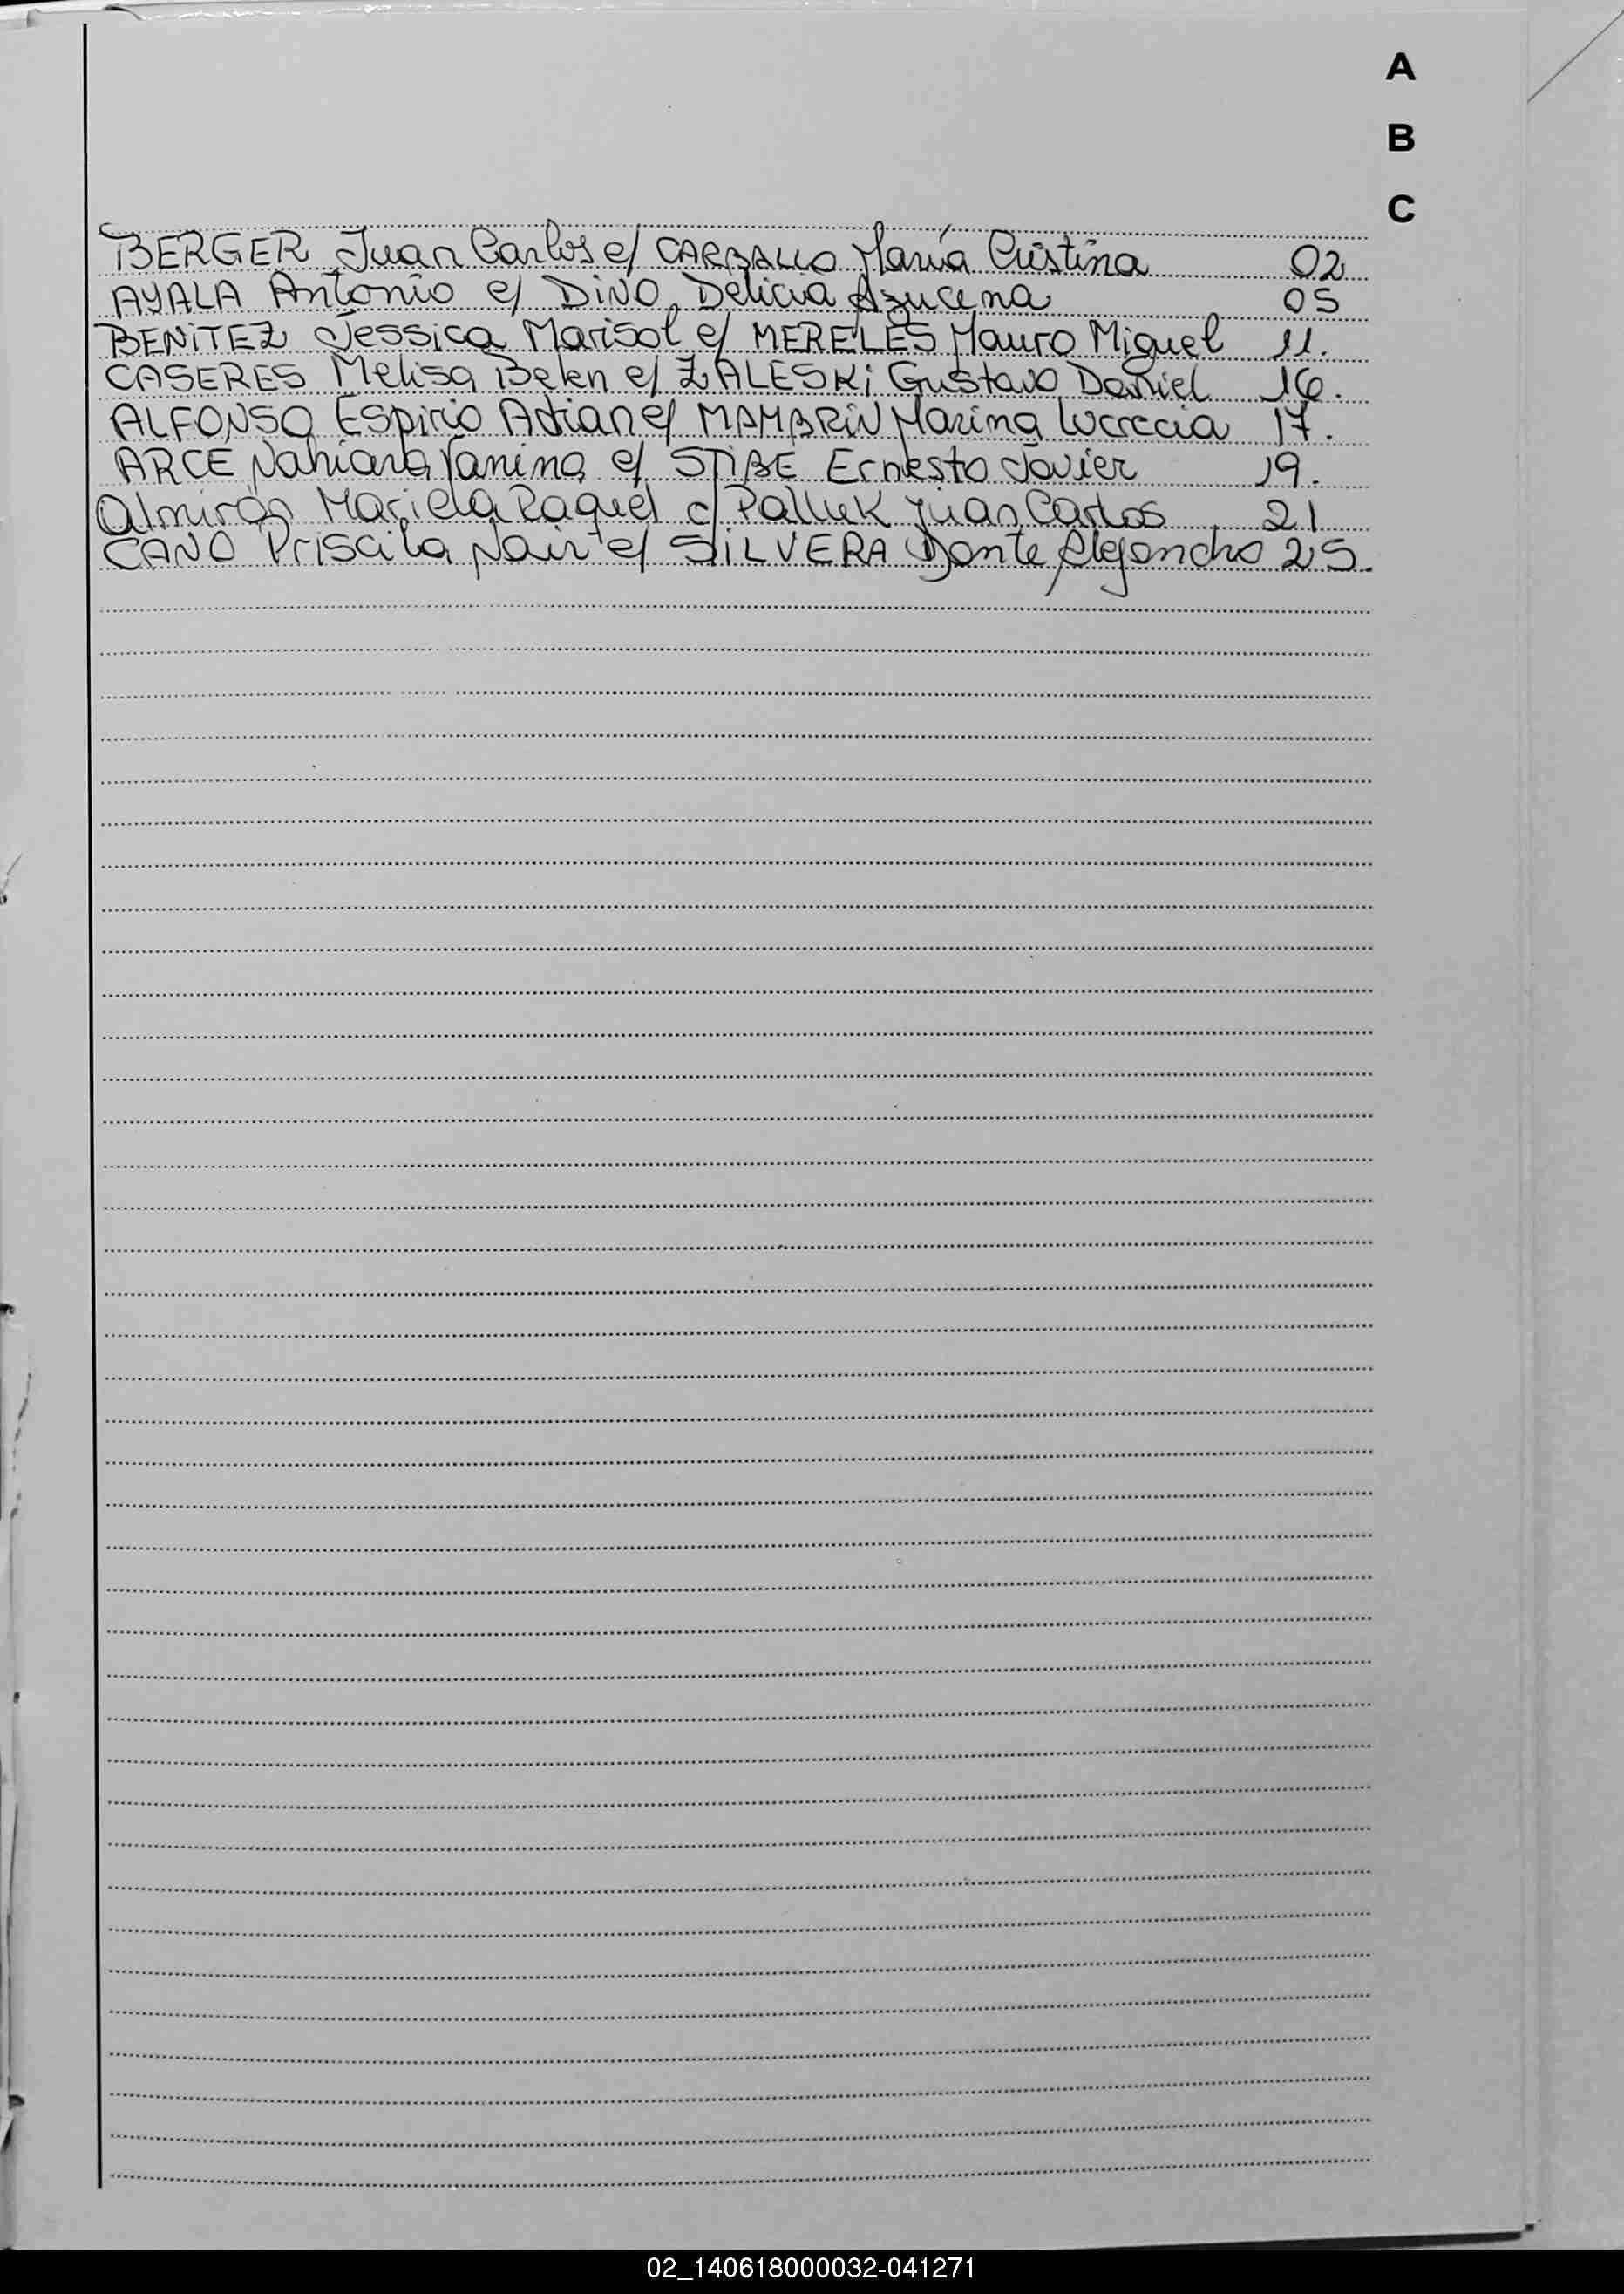 A
B
C
BERGER Juan Carlos c/ CARBALLO María Cristina 02
AYALA Antonio c/ DINO Delicia Azucena 05
BENITEZ Jessica Marisol c/ MERELES Mauro Miguel 11.
CASERES Melisa Belen c/ ZALESKi Gustavo Daniel 16.
ALFONSO Espirio Adrian c/ MAMBRiN Marina Lucrecia 17.
ARCE Nahiara Yanina c/ STIBE Ernesto Javier 19.
Almirón Mariela Raquel c/ Palluk Juan Carlos 21
CANO Priscila Nair c/ SiLVERA Dante Alejandro 25.
02_140618000032-041271